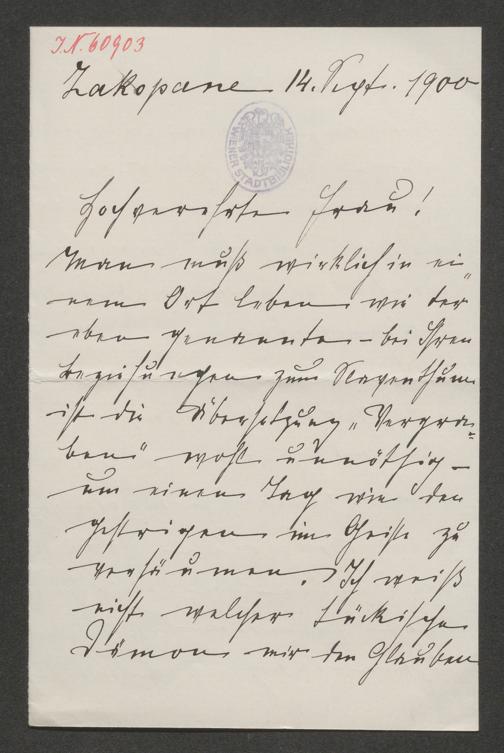 I.N. 60903
Zakopane 14. Sept. 1900
WIENER STADTBIBLIOTHEK
Hochverehrte Frau!
Man muß wirklich in ei-
nem Ort leben wie der
eben genannte – bei Ihren
Beziehungen zum Slaventhum
ist die Übersetzung „Vergra-
ben" wohl unnöthig –
um einen Tag wie den
gestrigen im Geiste zu
versäumen. Ich weiß
nicht welcher tückische
Dämon mir den Glauben